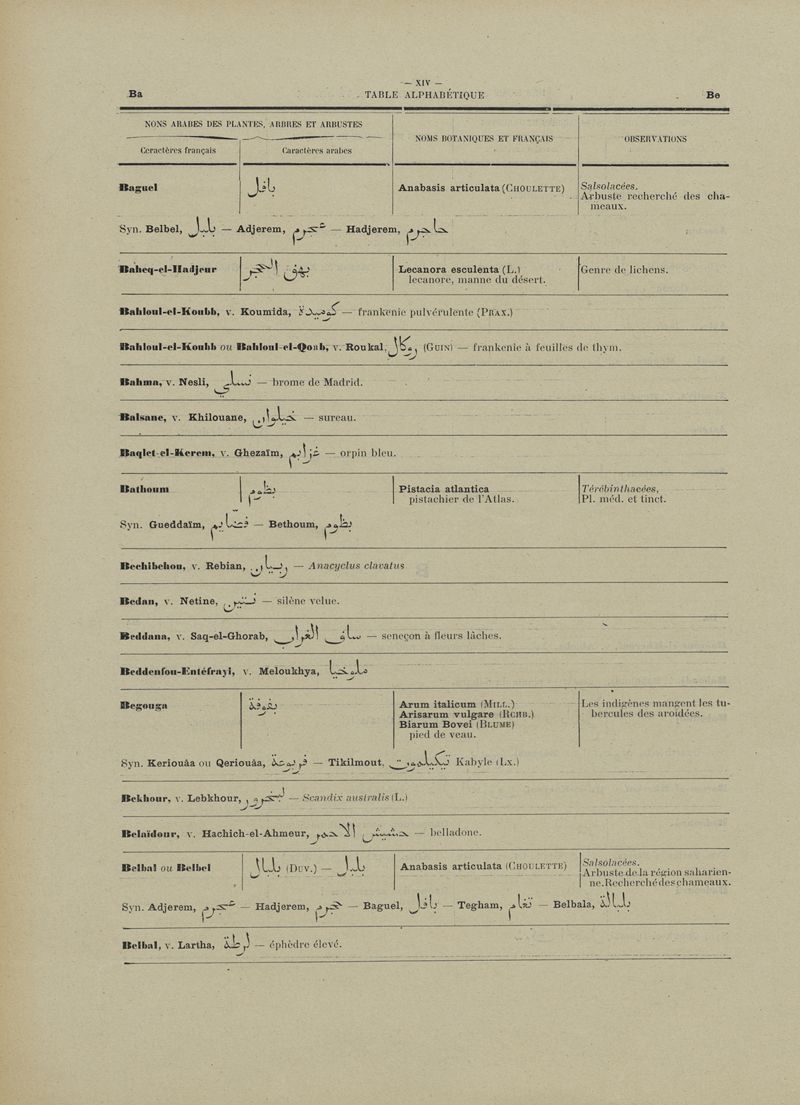 — XIV —
Ba TABLE ALPHABÉTIQUE Be
NONS ARABES DES PLANTES, ARBRES ET ARBUSTES
NOMS BOTANIQUES ET FRANÇAIS
OBSERVATIONS
Ceractères français
Caractères arabes
Baguel باقل Anabasis articulata (CHOULETTE) Salsolacées.
Arbuste recherché des cha-
meaux.
Syn. Belbel, بلبل — Adjerem, عجرم — Hadjerem, حاجرم
Baheq-el-Hadjeur بهق الحجر Lecanora esculenta (L.) Genre de lichens.
lecanore, manne du désert.
Bahloul-el-Koubb, v. Koumida, كوميدة — frankenie pulvérulente (PRAX.)
Bahloul-el-Koubb ou Bahloul-el-Qoab, v. Roukal, (GUIN) — frankenie à feuilles de thym.
Bahma, v. Nesli, نسلي — brome de Madrid.
Balsane, v. Khilouane, خيلوان — sureau.
Baqlet-el-Kerem, v. Ghezaïm, غزايم — orpin bleu.
Bathoum بطوم Pistacia atlantica Térébinthacées,
pistachier de l'Atlas. Pl. méd. et tinct.
Syn. Gueddaïm, — Bethoum, بطوم
Bechibchou, v. Rebian, ربيان — Anacyclus clavatus
Bedan, v. Netine, نتين — silène velue.
Beddana, v. Saq-el-Ghorab, ساق الغراب — seneçon à fleurs lâches.
Beddenfou-Entéfrayi, v. Meloukhya, ملوخيا
Begouga بقوقة Arum italicum (MILL.) Les indigènes mangent les tu-
Arisarum vulgare (RCHB.) bercules des aroidées.
Biarum Bovei (BLUME)
pied de veau.
Syn. Keriouâa ou Qeriouâa, قريوعة — Tikilmout, Kabyle (Lx.)
Bekhour, v. Lebkhour, — Scandix australis (L.)
Belaïdour, v. Hachich-el-Ahmeur, حشيش الاحمر — belladone.
Belbal ou Belbel بلبال (DUV.) — بلبل Anabasis articulata (CHOULETTE) Salsolacées.
Arbuste de la région saharien-
ne. Recherché des chameaux.
Syn. Adjerem, عجرم — Hadjerem, حجرم — Baguel, باقل — Tegham, تغام — Belbala, بلبالة
Belbal, v. Lartha, — éphèdre élevé.